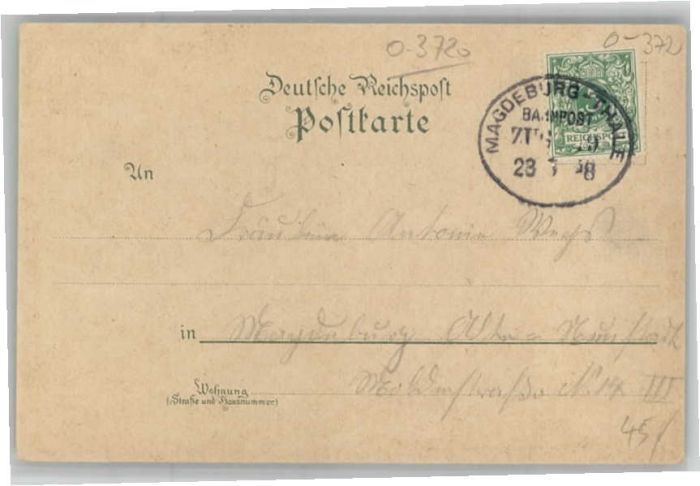 O-3720
O-372
Deutsche Reichspost
Postkarte
MAGDEBURG-THALE
BAHNPOST
ZUG
23
REICHSPOST
An
Fräulein Antonie
in Magdeburg Alte-Neustadt
Wohnung
(Straße und Hausnummer)
No 14 III
45/